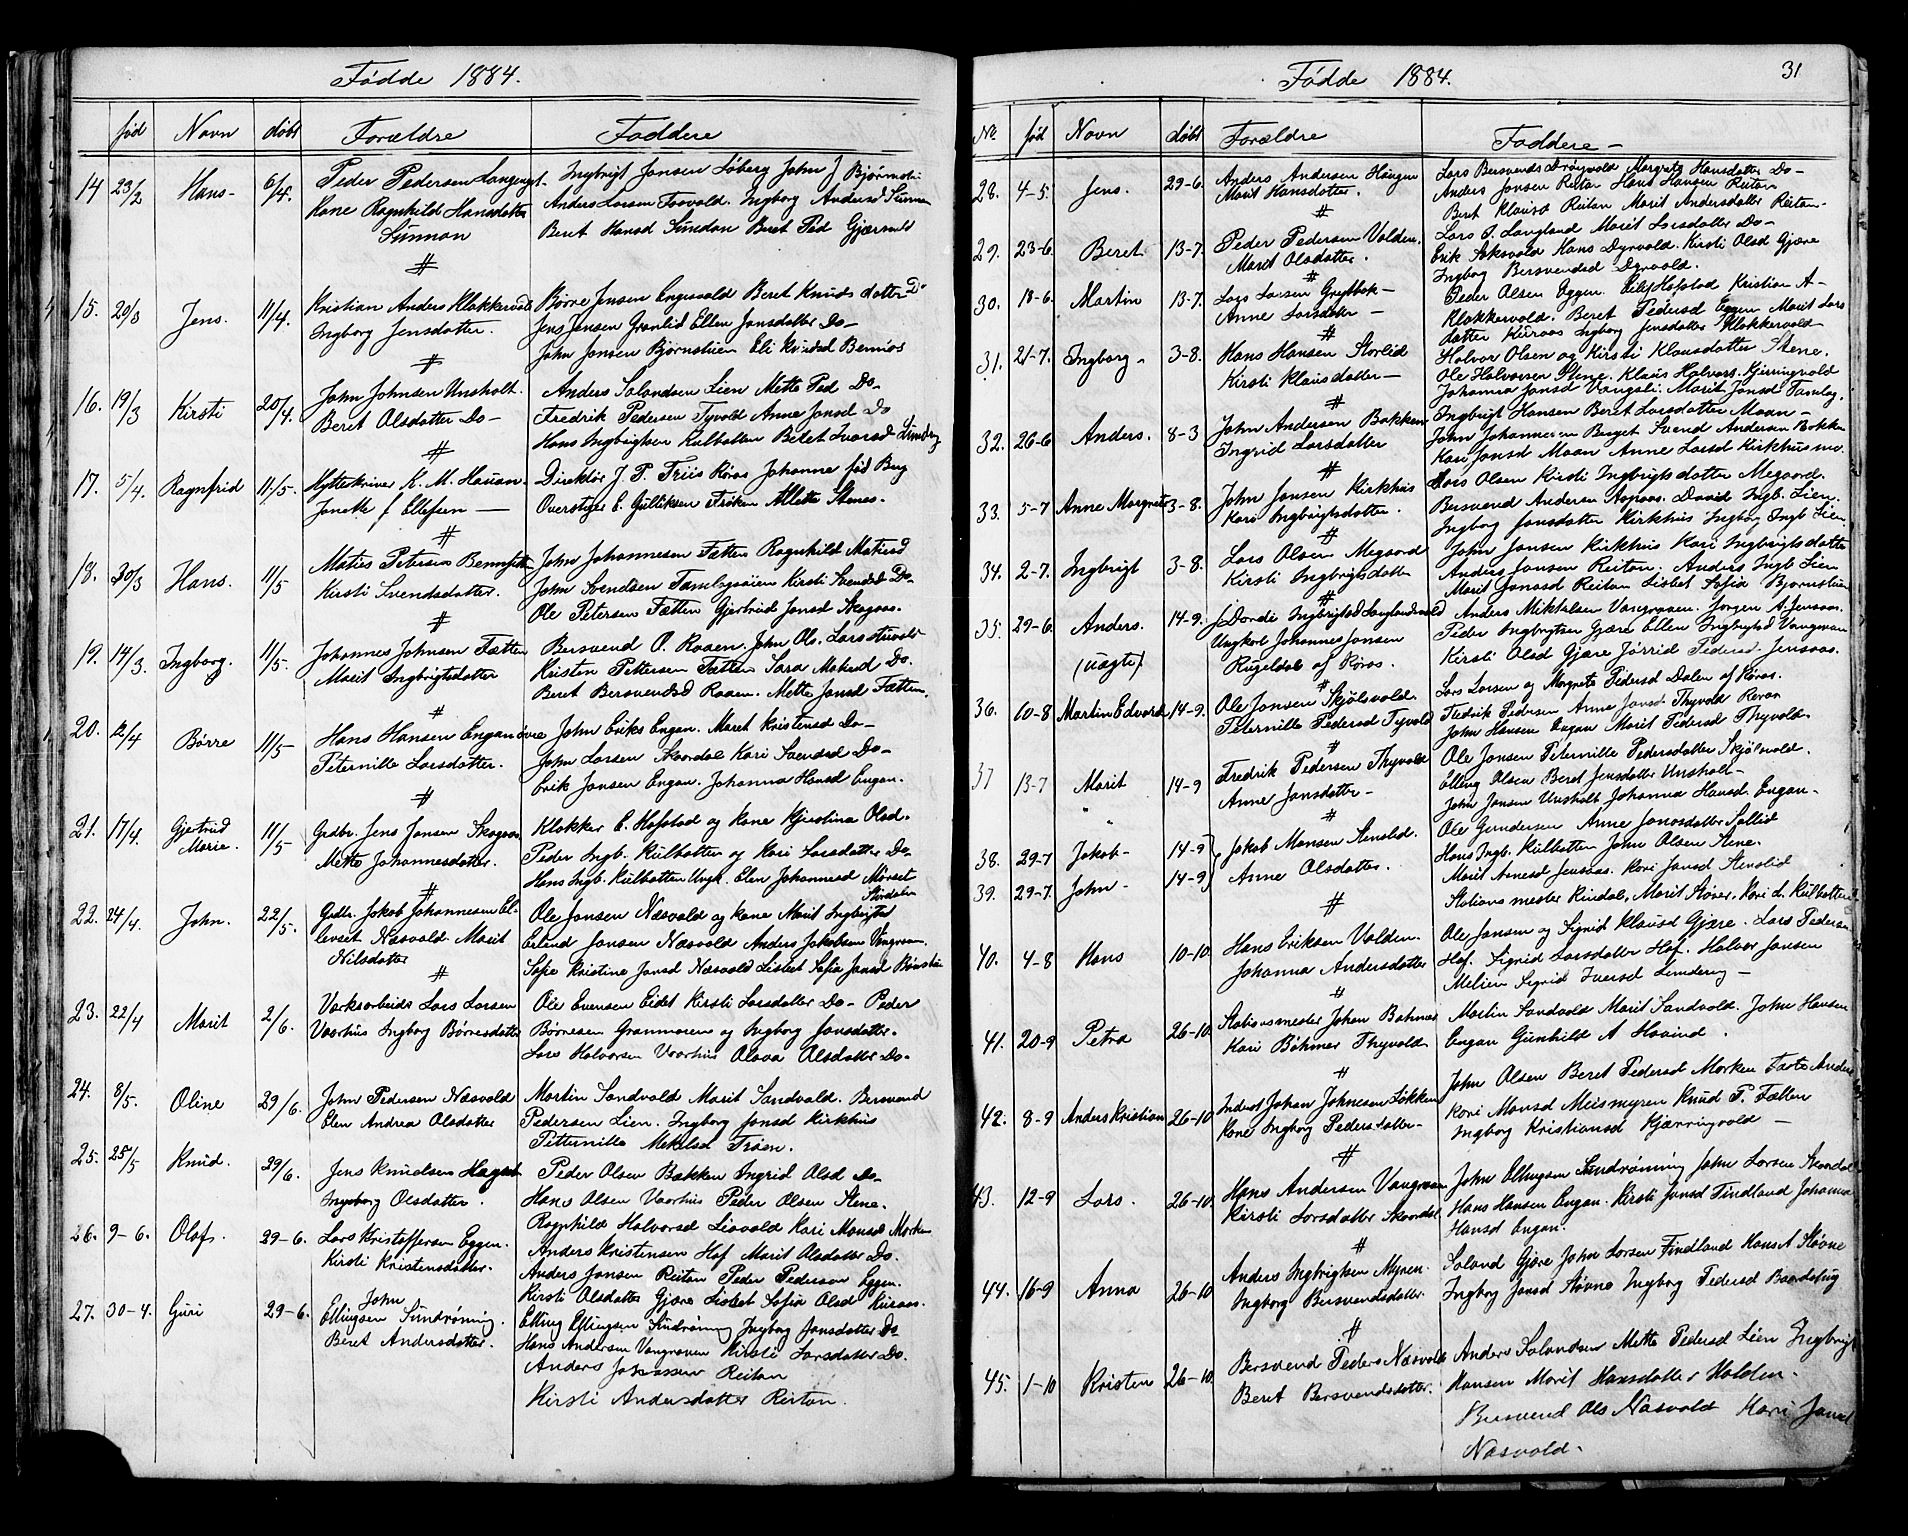 Fødde 1884.
fød Navn døbt Forældre Faddere
14 23/2 Hans- 6/4. Peder Pedersen Langengt. Ingbrigt Jonsen Løberg John J Bjørnsti
Kone Ragnhild Hansdatter Anders Larsen Foovold. Ingborg Andersd Sunnan
Sunnan Beret Hansd Sundan Beret Ped Gjærvold
#
15. 20/3 Jens. 11/4. Kristian Anders Klokkervold Børre Jensen Engesvold Beret Knudsdatter Do
Ingborg Jensdatter. Jens Jensen Grønlid Ellen Jonsdatter Do-
# John Jonsen Bjørnstuen Eli Knudsd Bennos
16. 19/3 Kirsti 20/4. John Johnsen Unsholt. Anders Salandsen Lien Mette Ped Do-
Beret Olsdatter Do- Fredrik Pedersen Tyvold Anne Jonsd Do
# Hans Ingbrigtsen Kulbotten Beret Ivarsd Lunding
17. 5/4. Ragnfrid 11/5. Hytteskriver K. M. Hauan- Direktør J. P. Friis Røros Johanne fød Bug
Janette f Ellefsen — Overstiger E. Gulliksen Frøken Mette Stenes.
#
18. 30/3 Hans. 11/5 Maties Petersen Bennsjett John Johannesen Fætten Ragnhild Matiesd
Kirsti Svendsdatter. John Svendsen Tamlagsøien Kirsti Svendsd Do.
# Ole Petersen Fætten Gjertrud Jonsd Skogaas.
19. 14/3. Ingborg. 11/5. Johannes Johnsen Fætten Bersvend O. Raaen. John Ols. Larsstuvold
Marit Ingbrigtsdatter Kristen Pettersen Fætten Sara Matiesd Do.
# Beret Bersvendsd Raaen. Mette Jonsd Fætten.
20. 12/4 Børre 11/5 Hans Hansen Engan øvre John Eriks Engan. Maret Kristensd Do-
Peternille Larsdatter. John Larsen Skovdal Kari Svendsd Do-
# Erik Jonsen Engan. Johanna Hansd Engan.
21. 17/4 Gjertrud Marie. 11/5 Grdbr. Jens Jonsen Skogaas Klokker E. Hofstad og Kone Kjerstina Olsd.
Mette Johannesdatter. Peder Ingb. Kulbotten og Kari Larsdatter Do-
# Hans Ingb. Kulbotten Ungk. Elen Johannesd Mørset Stördalen
22. 24/4. John. 22/5. Grdbr. Jakob Johannesen El- Ole Jonsen Næsvold og Kone Marit Ingbrigts
levset Næsvold. Marit Erlend Jonsen Næsvold Anders Jakobsen Vingraan.
Nilsdatter Sofie Kristine Jonsd Næsvold Lisbet Sofia Jonsd Bjønstu
#
23. 22/4 Marit 2/6. Værksarbeids Lars Larsen Ole Evensen Eidet Kirsti Larsdatter Do- Peder
Vaarhus Ingborg Børresdatter Børresen Granmoren og Ingborg Jonsdatter.
Lars Halvorsen Vaarhus Olava Olsdatter Do-
24. 8/5. Oline 29/6. John Pedersen Næsvold Martin Sandvold Marit Sandvold. Bersvend
Elen Andrea Olsdatter Pedersen Lien. Ingborg Jonsd Kirkhus
Petternille Mekelsd Trøen.
25. 25/5 Knud. 29/6. Jens Knudsen Haget Peder Olsen Bakken Ingrid Olsd Do-
Ingeborg Olsdatter. Hans Olsen Vaarhus Peder Olsen Stene.
26. 9-6. Olaf. 29-6. Lars Kristoffersen Eggen. Ragnhild Halvorsd Liavold Kari Monsd Morken
Kirsti Kristensdatter. Anders Kristensen Hof Marit Olsdatter Do.
Anders Jonsen Reitan Peder Pederson Eggen.
27. 30-4. Guri 29-6. John Kirsti Olsdatter Gjære Lisbet Sofia Olsd Kuraas.
Ellingsen Sundrønning. Elling Ellingsen Sundrønning Ingborg Jonsdatter Do-
Beret Andersdatter. Hans Andersen Vangraven Kirsti Larsdatter Do.
Anders Johansen Reitan
Kirsti Andersdatter Reitan.
31
Fødde 1884.
No fød Navn døbt Forældre Faddere-
28. 4-5. Jens. 29-6. Anders Andersen Haugen Lars Bersvends Drøyvold Margrete Hansdatter Do-
Marit Hansdatter. Anders Jonsen Reitan Hans Hansen Reitan
# Beret Klausd Reitan Marit Andersdatter Reitan-
29. 23-6. Beret 13-7. Peder Pedersen Volden. Lars P. Langland Marit Larsdatter Do-
Marit Olsdatter. Erik Saksvold Hans Dyrvold. Kirsti Olsd Gjære
# Ingborg Bersvendsd Dyrvold.
30. 18-6. Martin 13-7. Lars Larsen Grytbak- Peder Olsen Eggen. Hofstad Kristian A-
Anne Larsdatter- Klokkervold. Beret Pedersd Eggen Marit Lars
# datter Kuraas Ingborg Jensdatter Klokkervold
31. 21-7. Ingborg- 3-8. Hans Hansen Storlid Halvor Olsen og Kirsti Klausdatter Stene.
Kirsti Klausdatter- Ole Halvorsen Stene. Klaus Halvors. Kjerringvold
# Johanna Jonsd Vangsli. Marit Jonsd Tamlag.
32. 26-6 Anders. 8-3 John Andersen Bakken Ingbrigt Hansen Beret Larsdatter Moan-
Ingrid Larsdatter John Johannesen Berget Svend Andersen Bakken
# Kari Jonsd Moan Anne Larsd Kirkhusmo.
33. 5-7 Anne Margrete 3-8. John Jonsen Kirkhus Lars Olsen Kirsti Ingbrigtsdatter Megaard.
Kari Ingbrigtsdatter. Bersvend Andersen Aspaas. David Ingb. Lien.
# Ingborg Jonsdatter Kirkhus Ingborg Ingb Lien
34. 2-7. Ingbrigt 3-8. Lars Olsen Megaard John Jonsen Kirkhus Kari Ingbrigtsdatter
Kirsti Ingbrigtsdatter Anders Jonsen Reitan. Anders Ingb Lien
# Marit Jonasd Reitan Lisbet Sofia Bjørnstuen
35. 29-6. Anders. 14-9. f Dordi Ingbrigtsd Langlandsvold Anders Mikkelsen Vangraven. Jørgen A. Jensaas.
(uægte) Ungkarl Johannes Jonsen Peder Ingbrigtsen Gjære Ellen Ingbrigtsd Vangraven
Rugeldal af Røros. Kirsti Olsd Gjære Jørrid Pedersd. Jensaas.
# Lars Larsen og Margrete Pedersd Dalen af Røros.
36. 10-8 Martin Edvard 14-9. Ole Jonsen Skjølsvold. Fredrik Pedersen Anne Jonsd Thyvold Røros
Peternille Pedersd Tyvold John Hansen Engan Marit Pedersd Thyvold.
#
37 13-7 Marit 14-9 Fredrik Pedersen Thyvold Ole Jonsen Peternille Pedersdatter Skjølsvold.
Anne Jonsdatter- Elling Olsen Beret Jensdatter Unsholt-
# John Jonsen Unsholt Johanna Hansd. Engan-
38. 29-7 Jakob- 14-9 Jakob Monsen Stenslid. Ole Gundersen Anne Jonasdatter Sollid
39. 29-7. John- 14-9 Anne Olsdatter. Hans Ingb. Kulbotten John Olsen Stene.
# Marit Arnesd Jensaas. Kari Jonsd Stenslid
Stationsmester Rindal. Marit Støver, Kari L. Kulbotten
40. 4-8 Hans 10-10. Hans Eriksen Volden. Ole Jonsen og Sigrid Klausd Gjære. Lars Pedersen
Johanna Andersdatter Hof. Sigrid Larsdatter Hof. Halvor Jonsen
# Melien Sigrid Ivarsd Lunding-
41. 20-9 Petra 26-10. Stationsmester Johan Bohmer Martin Sandvold Marit Sandvold. John Hansen
Kari Böhmer Thyvold Engan Gunhild A Hovind.
#
42. 8-9 Anders Kristian 26-10. Inderst Johan Johnesen Løkken John Olsen Beret Pedersd Morken Anders
Kone Ingborg Pedersdatter- Kari Monsd Meismyren Knud P. Fætten
# Ingborg Kristiansd Kjærringvold-
43. 12-9 Lars. 26-10. Hans Andersen Vangraven John Ellingsen Sundrønning John Larsen Skovdal
Kirsti Larsdatter Skovdal Hans Hansen Engan. Kirsti Jonsd Findland Johanna
# Hansd Engan.
44. 16-9 Anna 26-10 Anders Ingbrigtsen Myren. Saland Gjære John Larsen Findland Hans A Støvne
Ingborg Bersvendsdatter. Ingborg Jonsd Støvne Ingborg Pedersd Baardshug
#
45. 1-10 Kristen 26-10. Bersvend Peders Næsvold Anders Salandsen Mette Pedersd Lien Ingbrigt
Beret Bersvendsdatter. Hansen Marit Hansdatter Holden.
Bersvend Ols Næsvold Kari Jonsd
Næsvold.